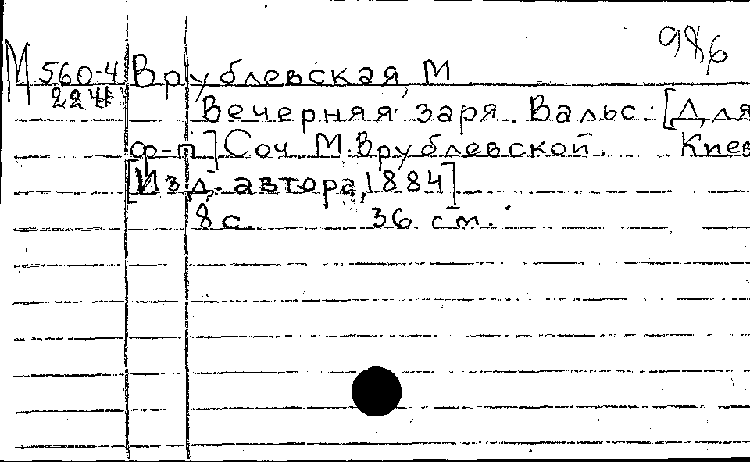 986
М 560-4 Врублевская, М
Вечерняя заря. Вальс. [Для
ф-п] Соч. М. Врублевской. Киев
[Изд. автора, 1884]
8 с. 36 см.